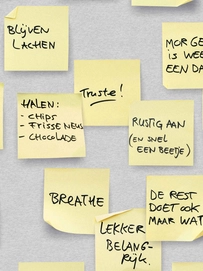 BLIJVEN
LACHEN
MORGE
IS WEE
EEN DA
Truste!
HALEN:
- CHIPS
- FRISSE NEUS
- CHOCOLADE
RUSTIG AAN
(EN SNEL
EEN BEETJE)
BREATHE
DE REST
DOET OOK
MAAR WAT
LEKKER
BELANG-
RIJK.